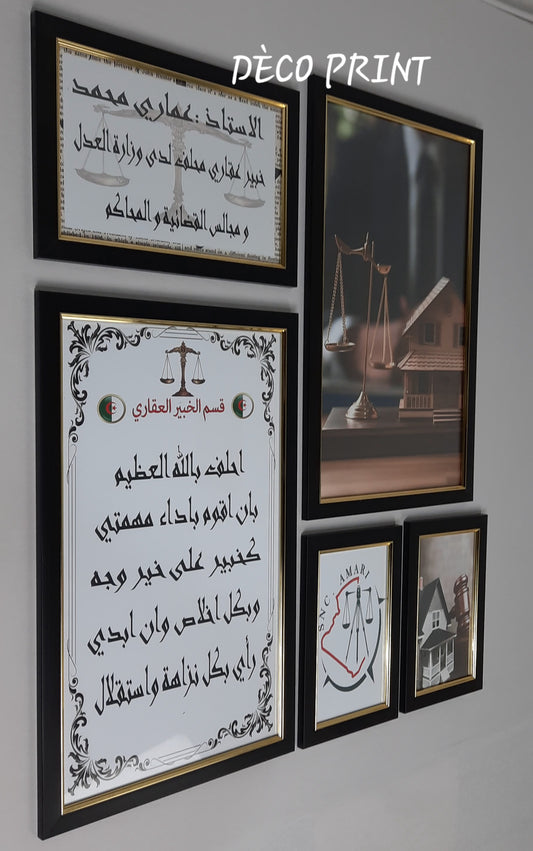 DÈCO PRINT
الاستاذ : عماري محمد
خبير عقاري محلف لدى وزارة العدل
و مجالس القضائية و المحاكم
قسم الخبير العقاري
احلف بالله العظيم
بان اقوم باداء مهمتي
كخبير على خير وجه
وبكل اخلاص وان ابدي
رأي بكل نزاهة واستقلال
SNC. AMARI